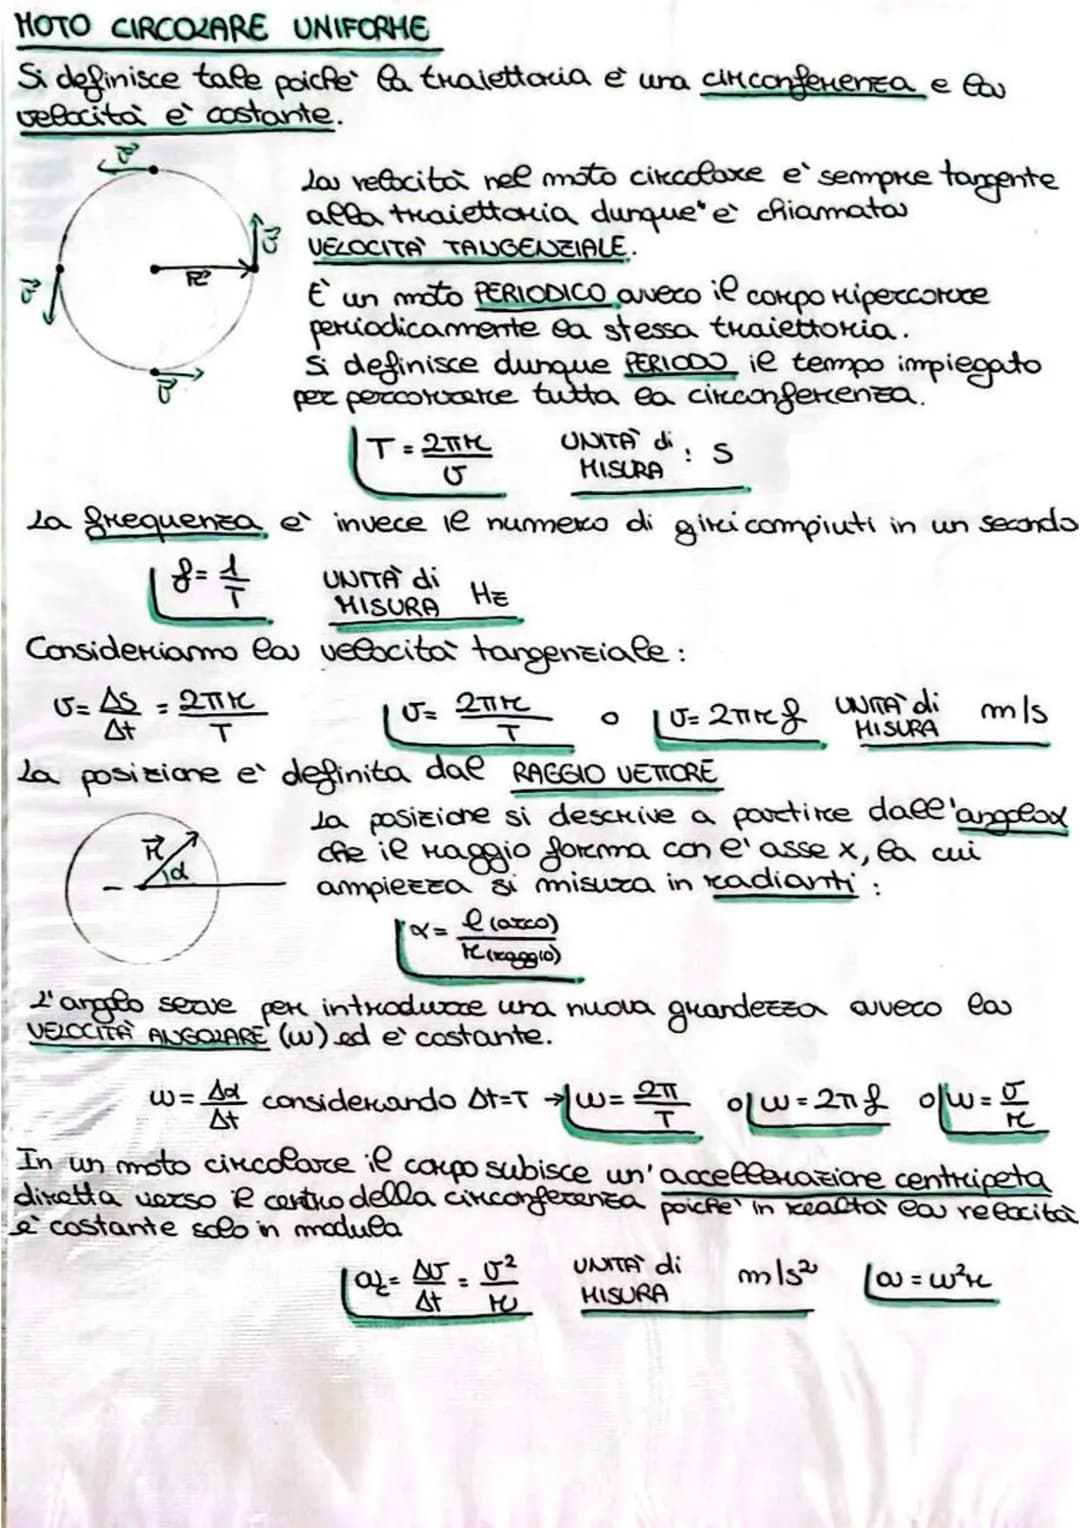 MOTO CIRCOLARE UNIFORME
Si definisce tale poichè la traiettoria è una circonferenza e la
velocità è costante.
v
La velocità nel moto circolare è sempre tangente
alla traiettoria dunque è chiamata
v
VELOCITÀ TANGENZIALE.
R
v
È un moto PERIODICO ovvero il corpo ripercorre
periodicamente la stessa traiettoria.
Si definisce dunque PERIODO il tempo impiegato
v
per percorrere tutta la circonferenza.
T = 2πr/v UNITÀ di MISURA : s
La frequenza è invece il numero di giri compiuti in un secondo
f = 1/T UNITÀ di MISURA Hz
Consideriamo la velocità tangenziale:
v = Δs/Δt = 2πr/T v = 2πr/T o v = 2πrf UNITÀ di MISURA m/s
La posizione è definita dal RAGGIO VETTORE
La posizione si descrive a partire dall'angolo α
che il raggio forma con l'asse x, la cui
R α
ampiezza si misura in radianti:
α = l (arco)/r (raggio)
L'angolo serve per introdurre una nuova grandezza ovvero la
VELOCITÀ ANGOLARE (w) ed è costante.
w = Δα/Δt considerando Δt=T → w = 2π/T o w = 2πf o w = v/r
In un moto circolare il corpo subisce un'accellerazione centripeta
diretta verso il centro della circonferenza poichè in realtà la velocità
è costante solo in modulo
= Δv/Δt = v²/r UNITÀ di MISURA m/s² a = w²r